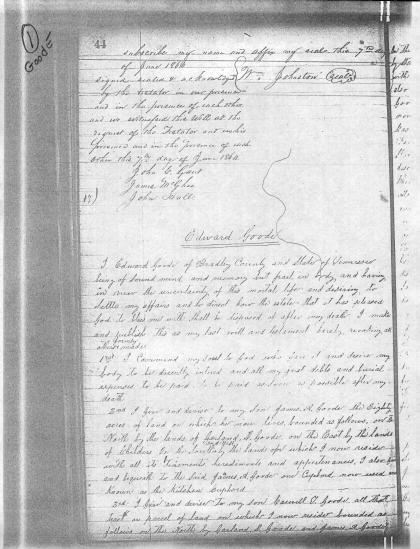 1
Goode
44
subscribe my name and affix my seale this 7th day
of June 1864
Wm Johnston (Seal)
signed sealed & acknowledged
by the Testator in our presence
and in the presence of each other
and we witnessed this Will at the
request of the Testator and in his
presence and in the presence of each
other this 7th day of June 1864
John C. Gaut
James McGhee
John
Edward Goode
I Edward Goode of Bradley County and State of Tennessee
being of sound mind and memory but frail in body, and having
in view the uncertainty of this mortal life and desiring to
settle my affairs and to direct how the estate that it has pleased
God to bless me with shall be disposed of after my death I make
and publish this as my last will and testament hereby revoking all
others made
1st I Commend my soul to God who gave it and desire my
body to be decently intered and all my just debts and burial
expenses to be paid as soon as possible after my
death
2nd I Give and devise to my son James A. Goode the Eighty
acres of land on which he now lives, bounded as follows, on the
North by the lands of Garland A. Goode on the East by the lands
of Childers on the South by the lands on which I now reside
with all its tenements heredaments and appertenances, I also give
and bequeath to the said James A. Goode one Cupbord now used and
known as the Kitchen Cupbord
3rd I Give and devise to my son C. Goode all that
tract or parcel of land on which I now reside bounded as
follows on the North by Garland A. Goode and James A. Goode